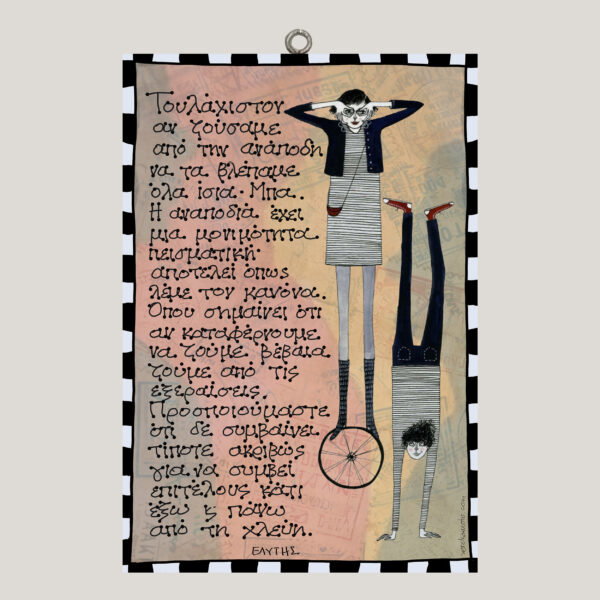 Τουλάχιστον
αν ζούσαμε
από την ανάποδη
να τα βλέπαμε
όλα ίσια. Μπα.
Η αναποδιά έχει
μια μονιμότητα
πεισματική
αποτελεί όπως
λέμε τον κανόνα.
Όπου σημαίνει ότι
αν καταφέρνουμε
να ζούμε βέβαια
ζούμε από τις
εξαιρέσεις.
Προσποιούμαστε
ότι δε συμβαίνει
τίποτε ακριβώς
για να συμβεί
επιτέλους κάτι
έξω ϗ πάνω
από τη χλεύη.
ΕΛΥΤΗΣ